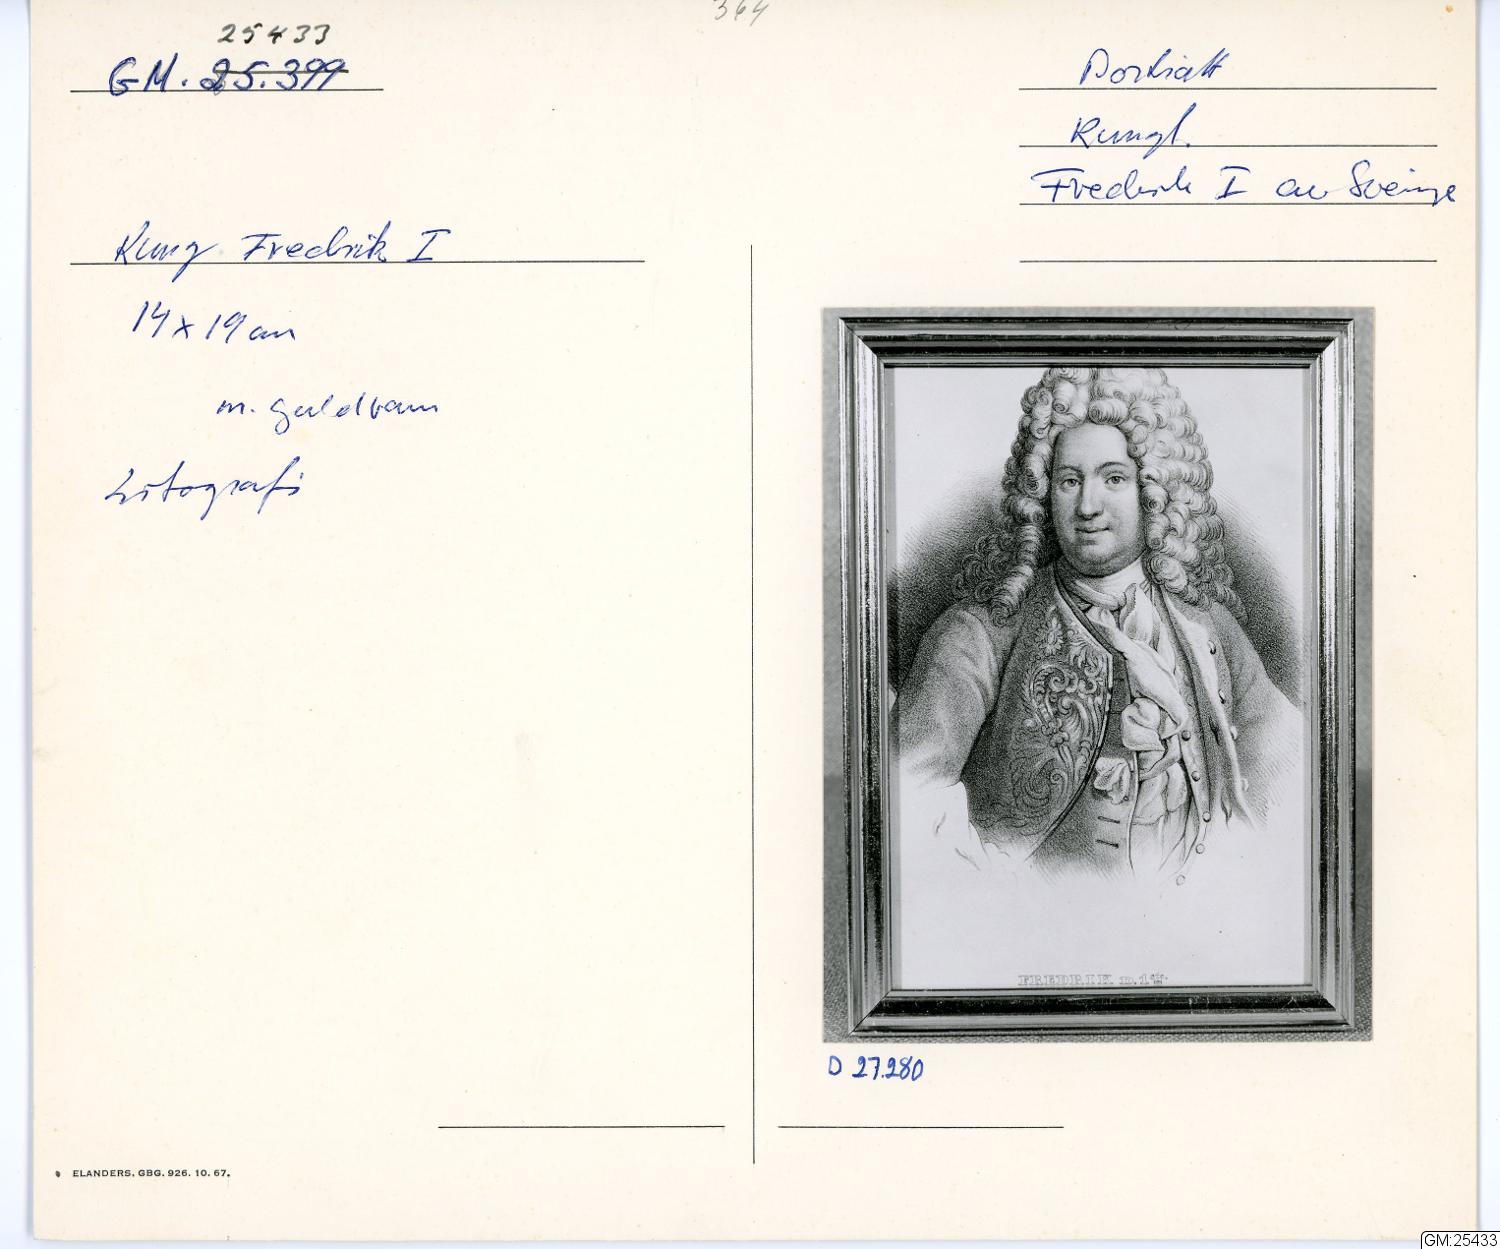 364
25433
GM. 25.399
Porträtt
Kungl.
Fredrik I av Sverige
Kung Fredrik I
14 x 19 cm
m. guldram
Litografi
FREDRIK D. 1
D 27.280
ELANDERS, GBG. 926. 10. 67.
GM:25433